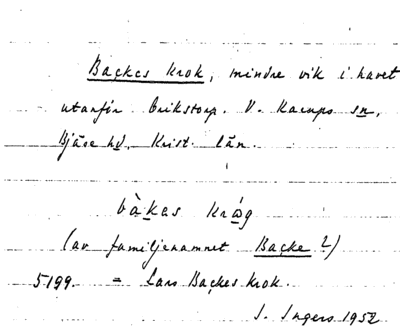 Backes krok, mindre vik i havet
utanför Erikstorp. V. Karups sn,
Bjäre hd. Krist. län.
bàkas kråg
(av familjenamnet Backe?)
5199. = Lars Backes krok.
I. Ingers 1952